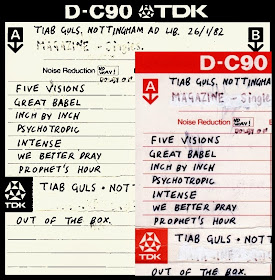 D-C90 TDK
A TIAB GULS, NOTTINGHAM AD LIB. 26/1/82 B
MAGAZINE - Singles
Noise Reduction NO WAY!
FIVE VISIONS
GREAT BABEL
INCH BY INCH
PSYCHOTROPIC
INTENSE
WE BETTER PRAY
PROPHET'S HOUR
TDK TIAB GULS • NOTT
OUT OF THE BOX.
D-C90
A TIAB GULS, NOTTINGHA
MAGAZINE - Single
Noise Reduction NO WAY!
FIVE VISIONS
GREAT BABEL
INCH BY INCH
PSYCHOTROPIC
INTENSE
WE BETTER PRAY
PROPHET'S HOUR
TDK TIAB GULS • NOTT
OUT OF THE BOX.